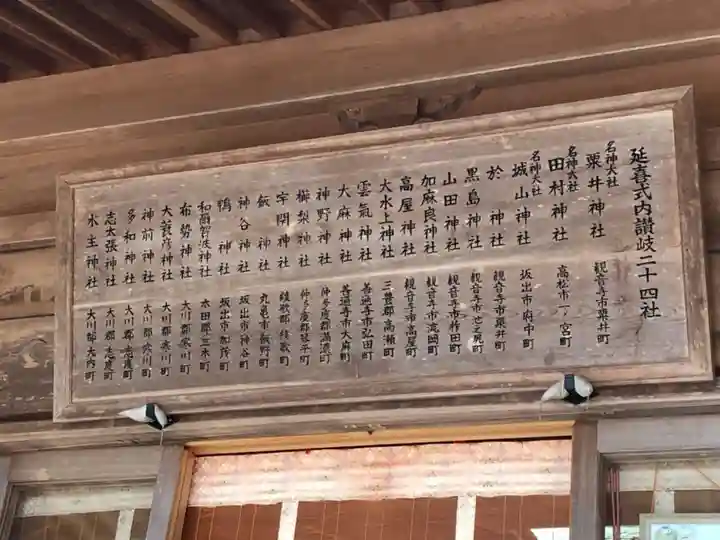 延喜式内讃岐二十四社
名神大社 粟井神社 観音寺市粟井町
名神大社 田村神社 高松市一ノ宮町
名神大社 城山神社 坂出市府中町
於神社 観音寺市粟井町
黒島神社 観音寺市池之尻町
山田神社 観音寺市柞田町
加麻良神社 観音寺市流岡町
高屋神社 観音寺市高屋町
大水上神社 三豊郡高瀬町
雲氣神社 善通寺市弘田町
大麻神社 善通寺市大麻町
神野神社 仲多度郡満濃町
櫛梨神社 仲多度郡琴平町
宇閇神社 綾歌郡綾歌町
飯神社 丸亀市飯野町
神谷神社 坂出市神谷町
鴨神社 坂出市加茂町
和爾賀波神社 木田郡三木町
布勢神社 大川郡寒川町
大蓑彦神社 大川郡寒川町
神前神社 大川郡寒川町
多和神社 大川郡志度町
志太張神社 大川郡志度町
水主神社 大川郡大内町